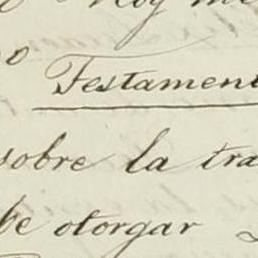 o Testament
sobre la tra
be otorgar